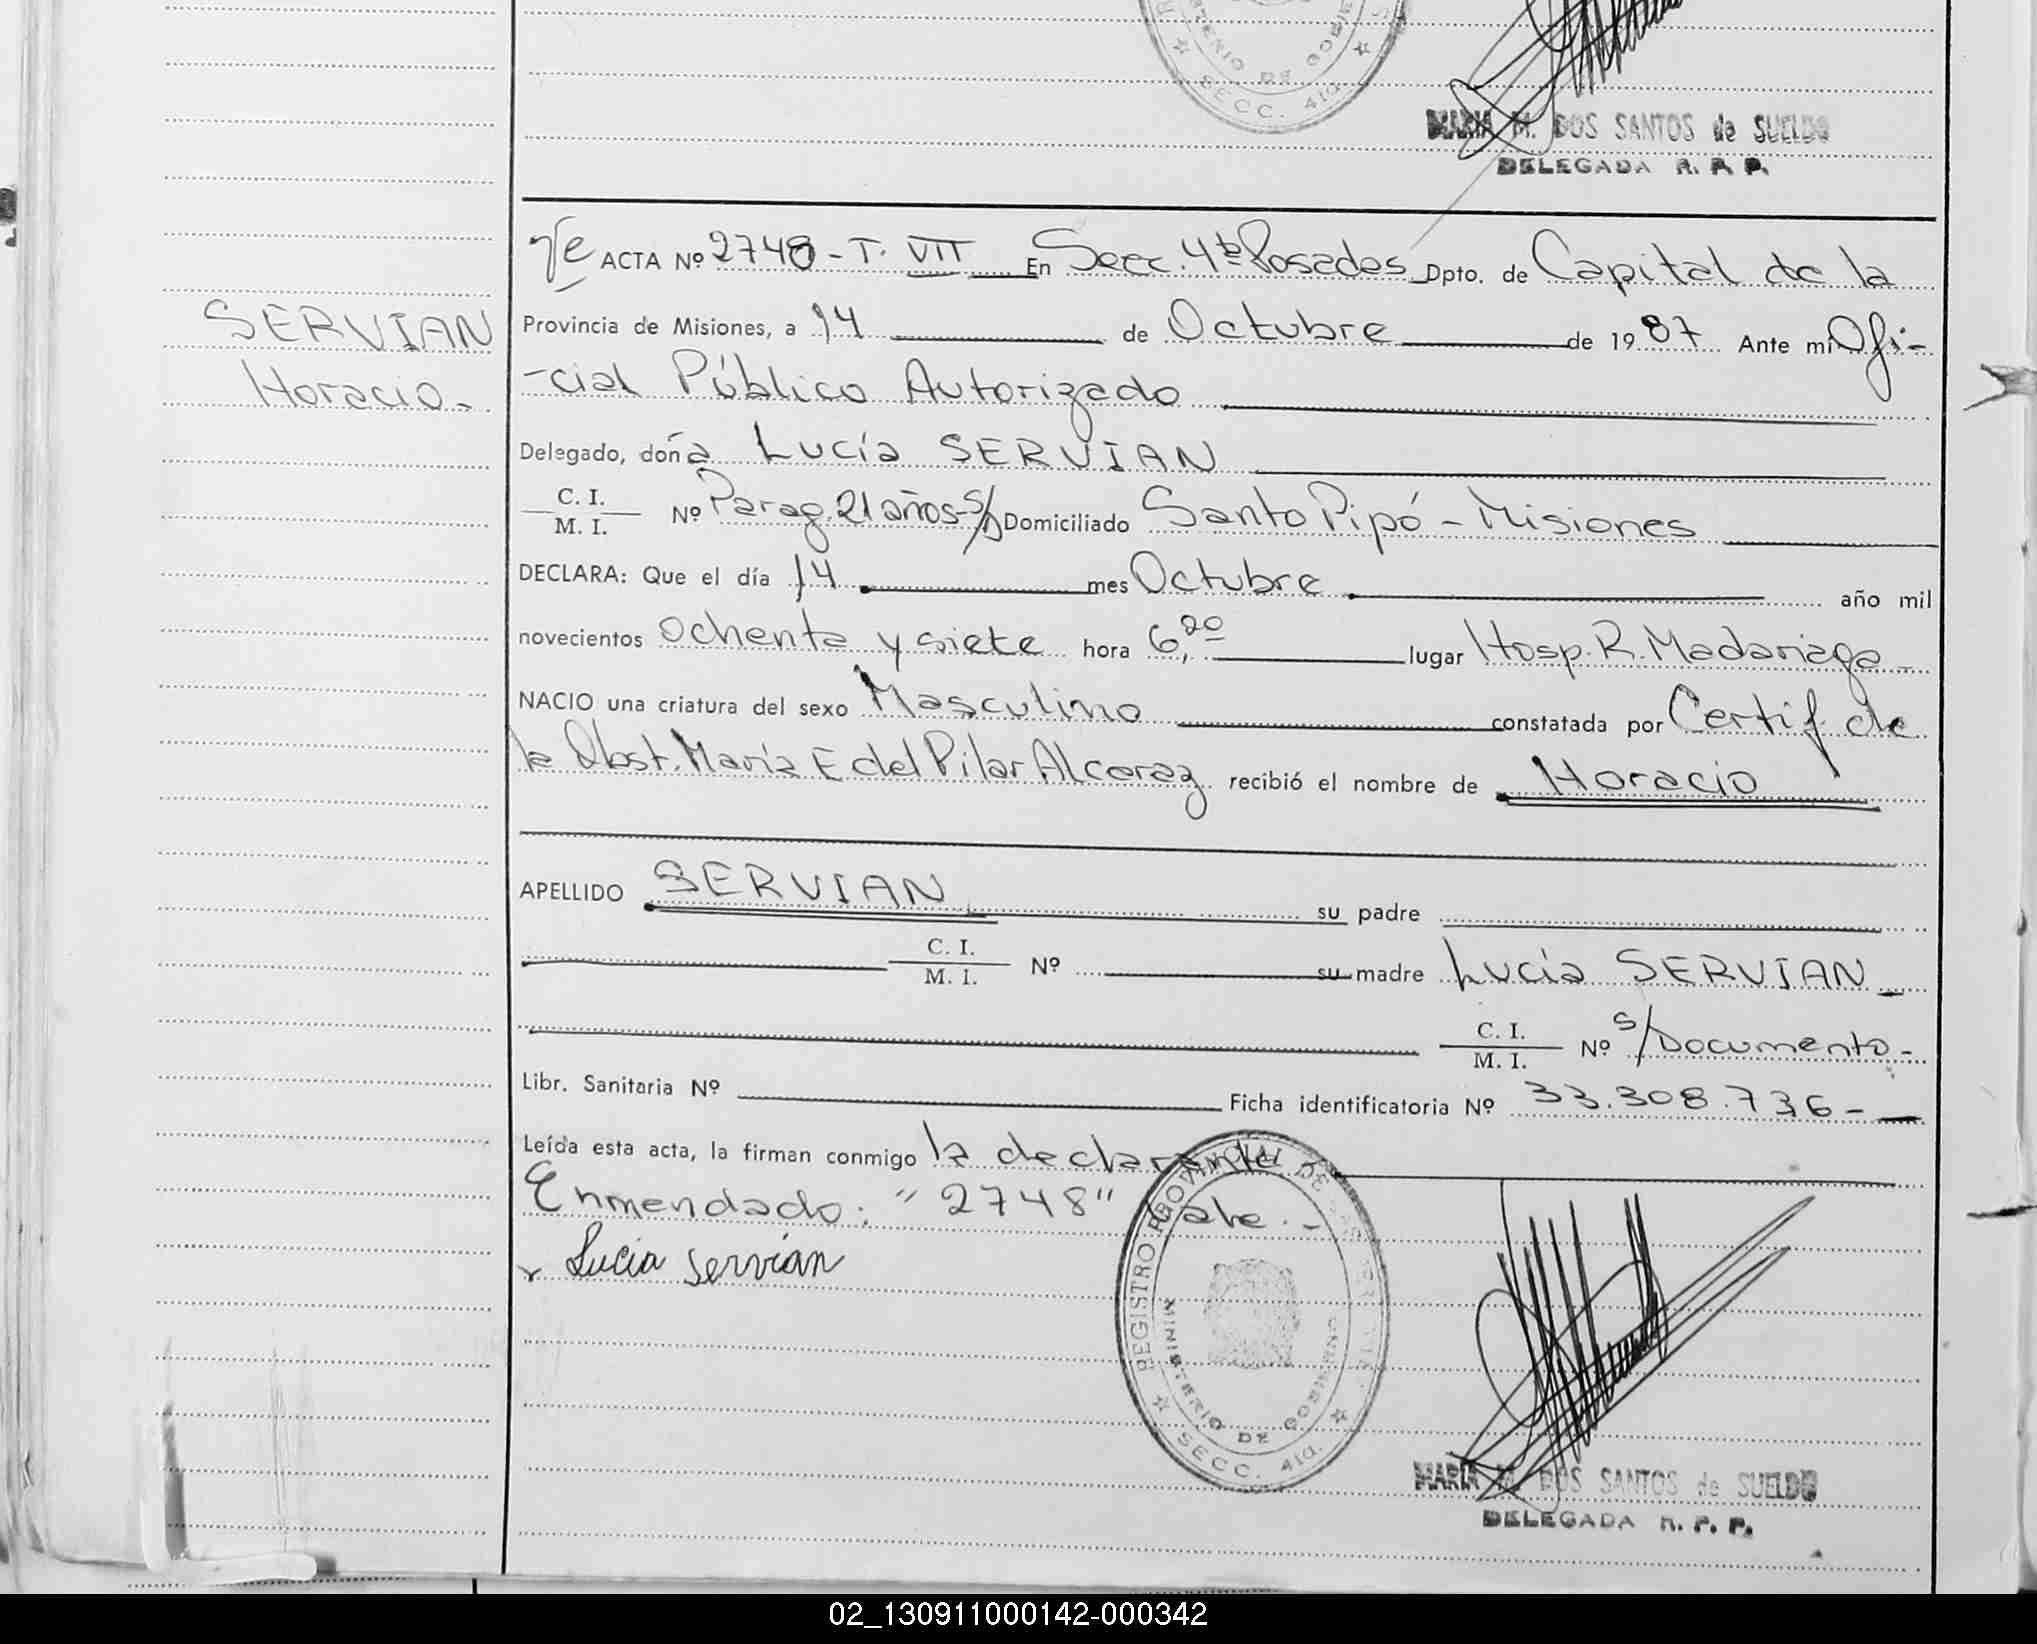 MINISTERIO DE GOBIERNO
SECC. 4ta.
MARIA M. DOS SANTOS de SUELDO
DELEGADA R. P. P.
ACTA Nº 2748 - T. VII En Secc. 4ta Posadas Dpto. de Capital de la
SERVIAN
Horacio.-
Provincia de Misiones, a 14 de Octubre de 1987 Ante mi Ofi-
-cial Público Autorizado
Delegado, doña Lucía SERVIAN
C. I.
M. I. Nº Parag. 21 años - s/D Domiciliado Santo Pipó - Misiones
DECLARA: Que el día 14 mes Octubre año mil
novecientos ochenta y siete hora 6,20 lugar Hosp. R. Madariaga -
NACIO una criatura del sexo Masculino constatada por Certif. de
la Obst. María E del Pilar Alcaraz recibió el nombre de Horacio
APELLIDO SERVIAN su padre
C. I.
M. I. Nº su madre Lucía SERVIAN -
C. I.
M. I. Nº s/Documento -
Libr. Sanitaria Nº Ficha identificatoria Nº 33.308.736 -
Leída esta acta, la firman conmigo la declarante
Enmendado: "2748" Vale. -
Lucia Servián
REGISTRO PROVINCIAL DE LAS PERSONAS
MINISTERIO DE GOBIERNO
SECC. 4ta.
MARIA M. DOS SANTOS de SUELDO
DELEGADA R. P. P.
02_130911000142-000342